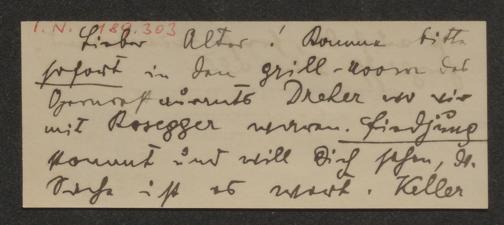 I. N. 189.303
Lieber Alter! Komme bitte
sofort in den grill-room des
Opernrestaurants Dreher wo wir
mit Rosegger waren.
kommt und will Dich sehen, die
Sache ist es wert. Keller